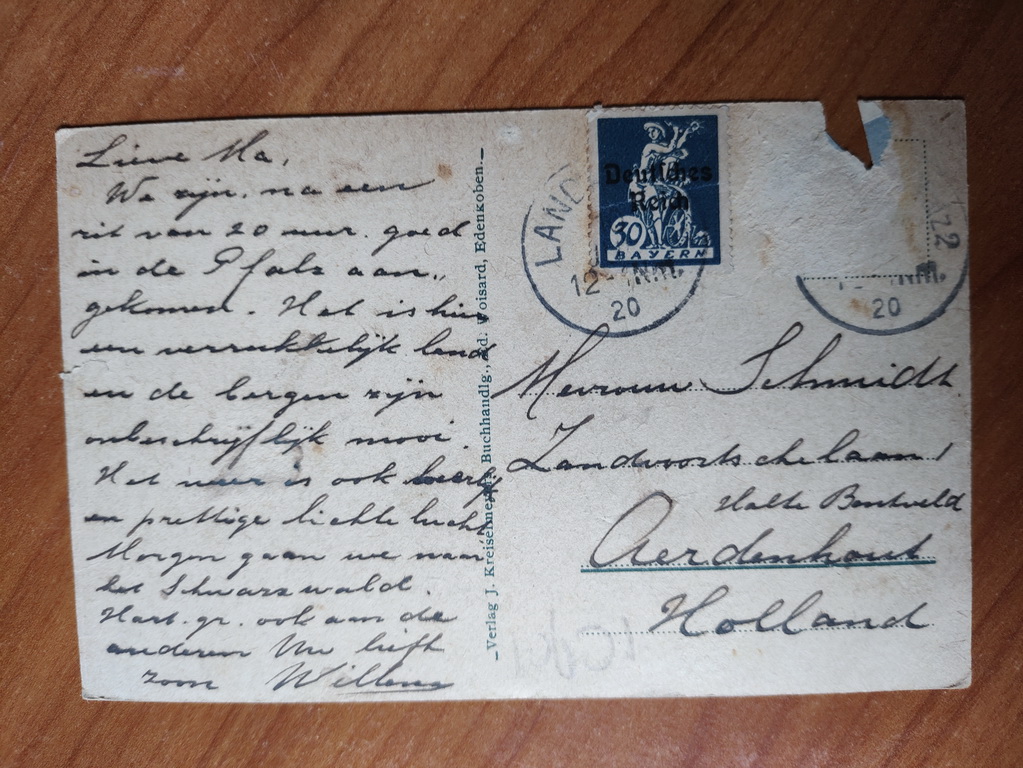 Lieve Ma,
We zijn, na een
rit van 20 uur. goed
in de Pfalz aan,,
gekomen. Het is hier
een verrukkelijk land
en de bergen zijn
onbeschrijflijk mooi.
Het weer is ook heerlijk
en prettige lichte lucht
Morgen gaan we naar
het Schwarzwald.
Hart. gr. ook aan de
anderen Uw liefh
zoon Willem
Verlag J. Buchhandlg., Ed. Voisard, Edenkoben.
Deutsches
Reich
30
BAYERN
LAND
12-1NM.
20
AZ2
NM.
20
Mevrouw Schmidt
Zandvoortschelaan 1
Halte Bentveld
Aerdenhout
Holland